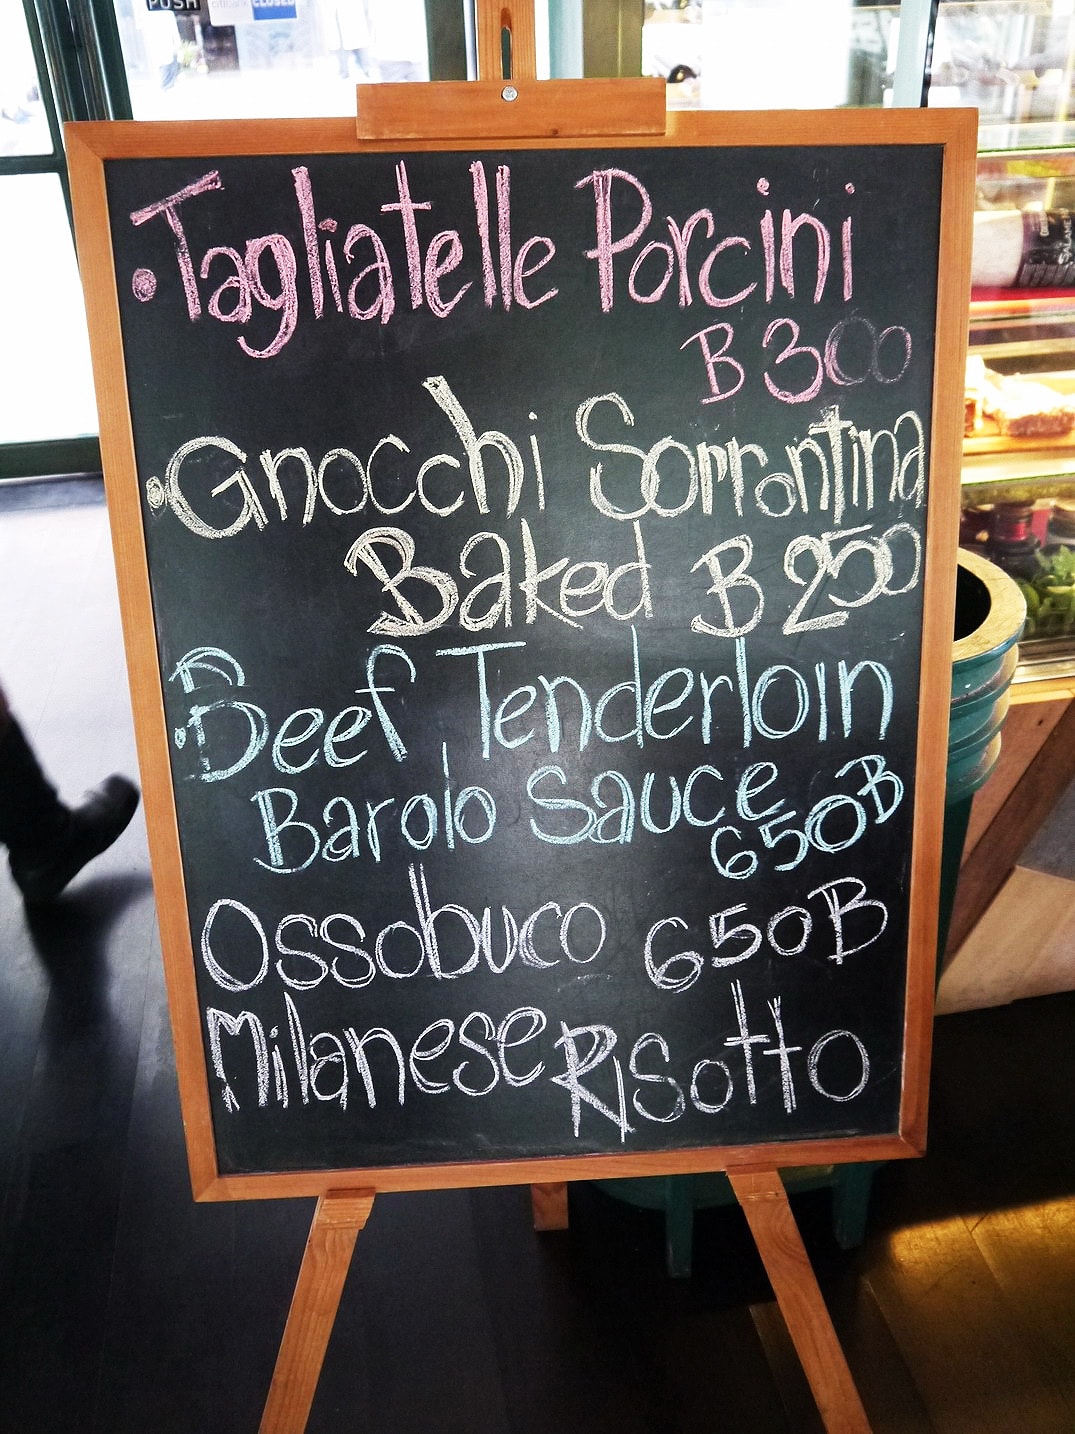 PUSH
citibank CLOSED
• Tagliatelle Porcini
B 300
• Gnocchi Sorrantina
Baked B 250
• Beef Tenderloin
Barolo Sauce
650B
Ossobuco 650B
Milanese Risotto
SALAME